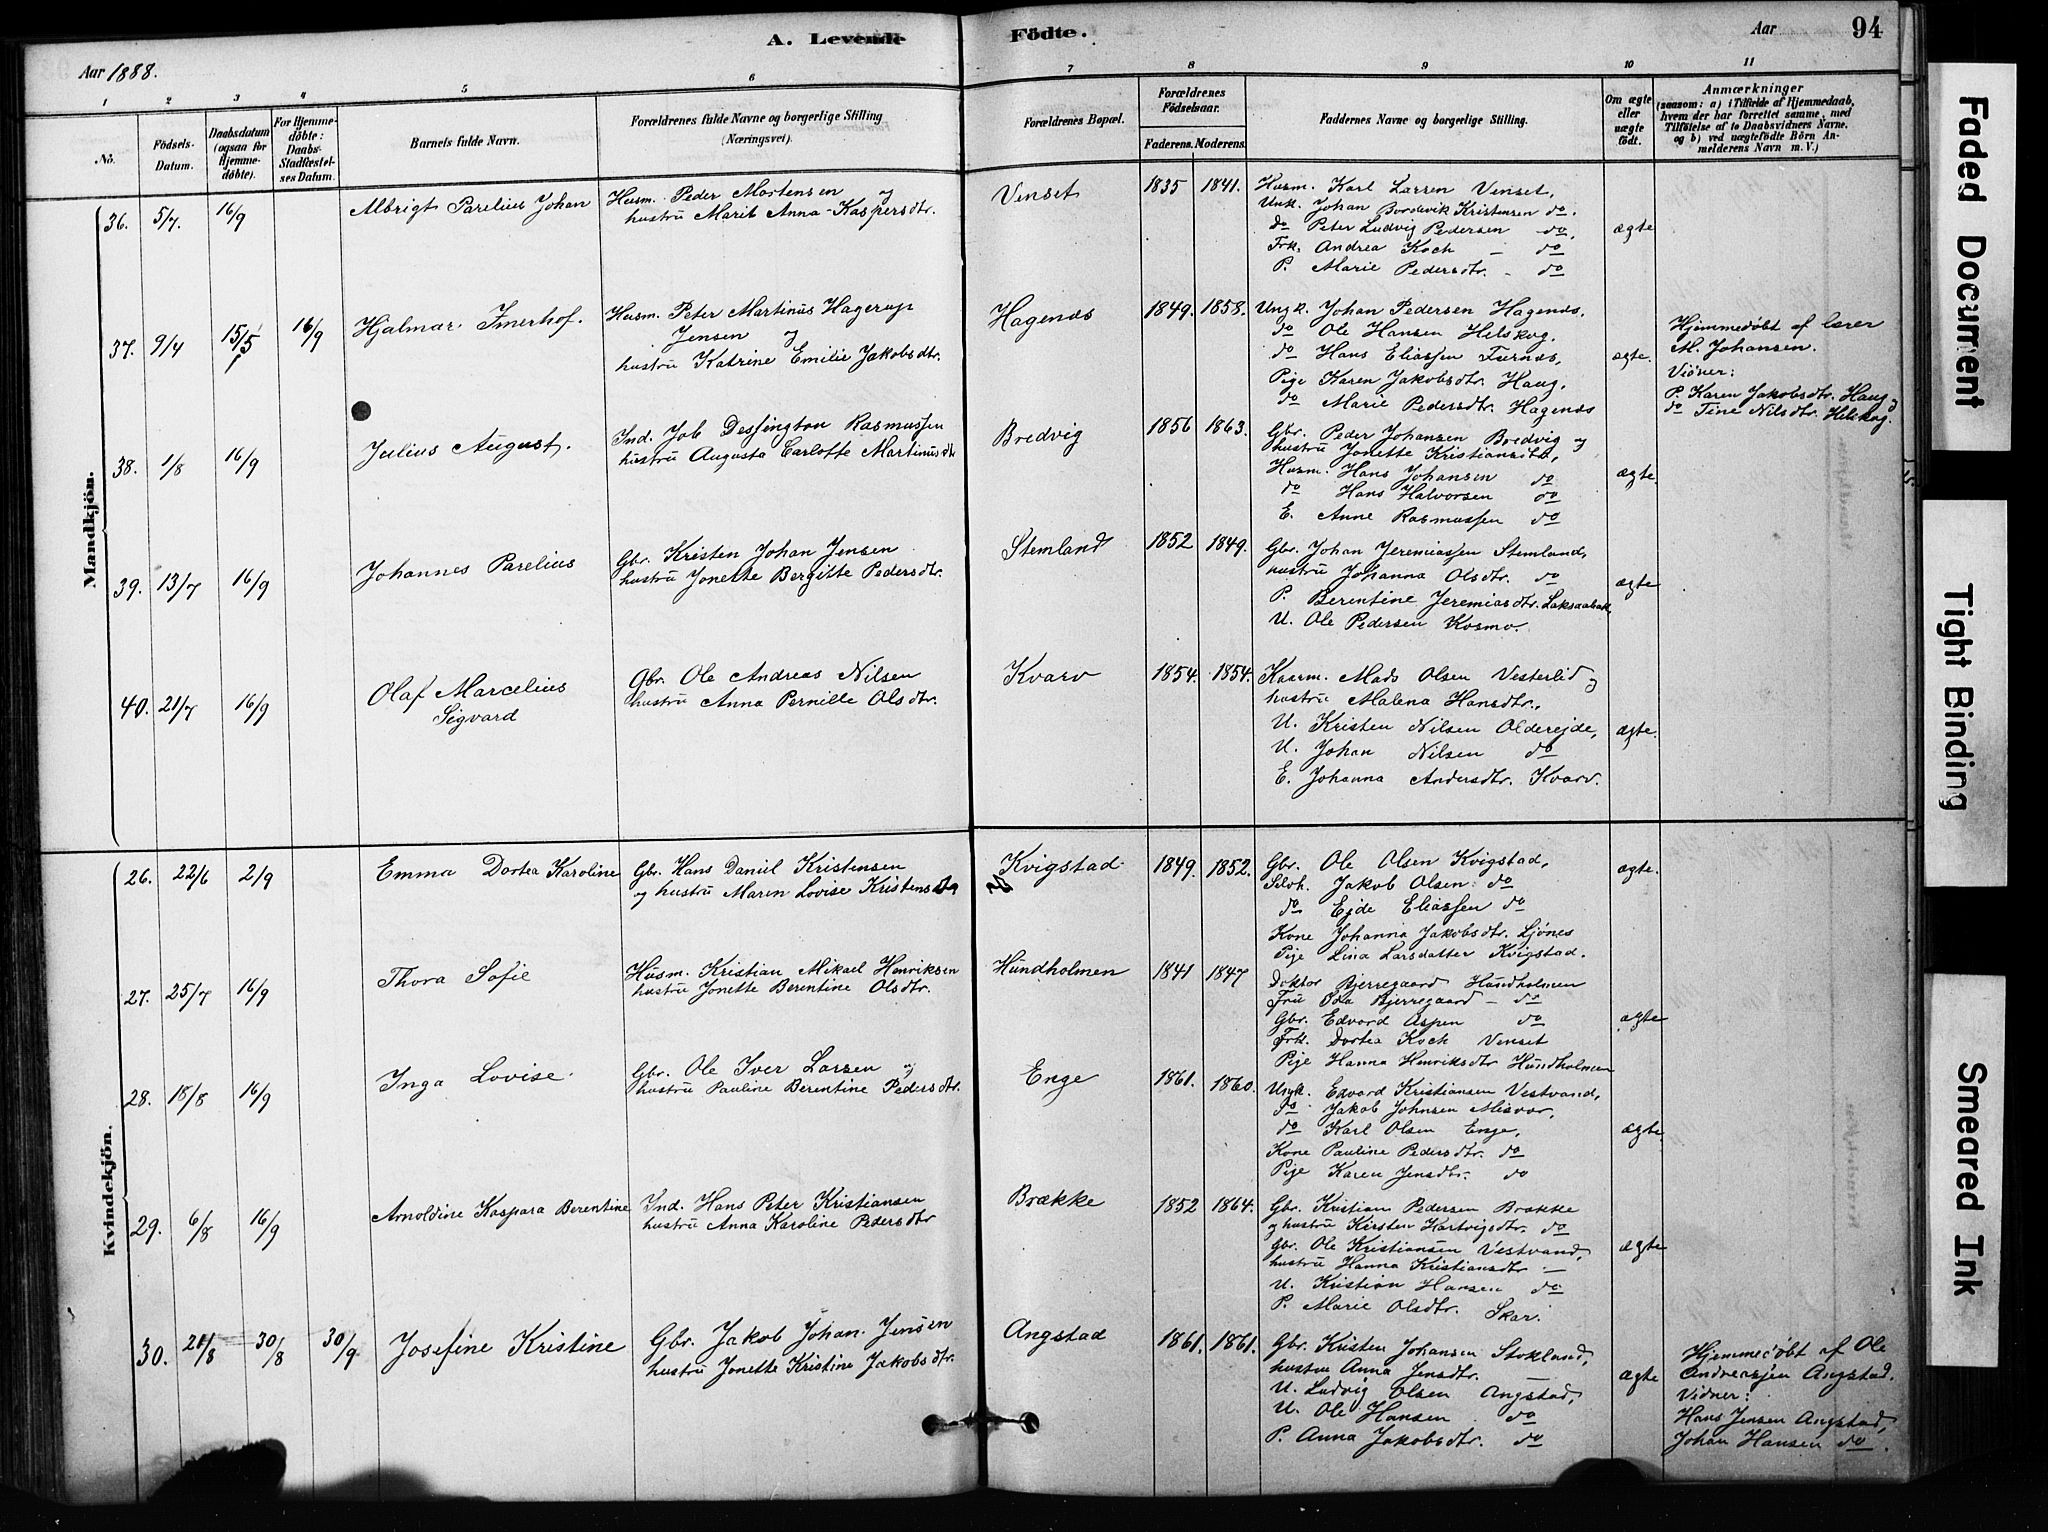 A. Levende Födte. Aar 94
Aar 1888.
1 2 3 4 5 6 7 8 9 10 11
No.
Födsels-Datum.
Daabsdatum (ogsaa for Hjemme-döbte).
For Hjemme-döbte: Daabs-Stadfæstel-ses Datum.
Barnets fulde Navn.
Forældrenes fulde Navne og borgerlige Stilling (Næringsvei).
Forældrenes Bopæl.
Forældrenes Födselsaar.
Faderens. Moderens.
Faddernes Navne og borgerlige Stilling.
Om ægte eller uægte födt.
Anmærkninger
(saasom: a) i Tilfælde af Hjemmedaab,
hvem der har forrettet samme, med
Tilföielse af to Daabsvidners Navne.
og b) ved uægtefödte Börn An-
melderens Navn m. V.)
Mandkjön.
36. 5/7. 16/9 Albrigt Parelius Johan
Husm. Peder Mortensen og
hustru Marit Anna Kaspersdtr.
Venset 1835 1841.
Husm. Karl Larsen Venset,
Unk. Johan Bordevik Kristensen do.
do Peter Ludvig Pedersen do,
Frk. Andrea Koch - do
P. Marie Pedersdtr. - do
ægte
37. 9/4 15/5 16/9 Hjalmar Imerhof.
Husm. Peter Martinus Hagerup
Jensen og
hustru Katrine Emilie Jakobsdtr.
Hagenæs 1849. 1858.
Ungk. Johan Pedersen Hagenæs.
do Ole Hansen Helskog.
do Hans Eliassen Furnæs,
Pige Karen Jakobsdtr. Haug,
do Marie Pedersdtr. Hagenæs
ægte.
Hjemmedøbt af lærer
M. Johansen.
Vidner:
P. Karen Jakobsdtr. Haug og
do Tine Nilsdtr. Helskog.
38. 1/8 16/9 Julius August.
Ind. Job Dessington Rasmussen
hustru Augusta Carlotte Martinusdtr
Bredvig 1856 1863.
Gbr. Peder Johansen Bredvig og
hustru Jonette Kristiansdtr,
Husm. Hans Johansen do
do Hans Halvorsen do
E. Anne Rasmussen do
ægte.
39. 13/7 16/9 Johannes Parelius
Gbr. Kristen Johan Jensen
hustru Jonette Bergitte Pedersdtr.
Stemland 1852 1849.
Gbr. Johan Jeremiassen Stemland,
hustru Johanna Olsdtr. do
P. Berentine Jeremiasdtr. Laksaabak
U. Ole Pedersen Kosmo.
ægte
40. 21/7 16/9 Olaf Marcelius
Sigvard
Gbr. Ole Andreas Nilsen
hustru Anna Pernille Olsdtr.
Kvarv 1854. 1854.
Kaarm. Mads Olsen Vesterlid og
hustru Malena Hansdtr.,
U. Kristen Nilsen Olderejde,
U. Johan Nilsen do
E. Johanna Andersdtr. Kvarv.
ægte.
Kvindekjön.
26. 22/6 2/9 Emma Dortea Karoline
Gbr. Hans Daniel Kristensen
og hustru Maren Lovise Kristensdtr
Kvigstad 1849. 1852.
Gbr. Ole Olsen Kvigstad,
Selvh. Jakob Olsen do
do Ejde Eliassen do
Kone Johanna Jakobsdtr. Ljönes
Pige Lina Larsdatter Kvigstad.
ægte.
27. 25/7 16/9 Thora Sofie
Husm. Kristian Mikael Henriksen
hustru Jonette Berentine Olsdtr.
Hundholmen 1841 1847
Doktor Bjerregaard Hundholmen
Fru Oda Bjerregaard - do
Gbr. Edvard Aspen do
Frk. Dortea Koch Venset
Pige Hanna Henriksdtr Hundholmen
ægte
28. 18/8 16/9 Inga Lovise.
Gbr. Ole Iver Larsen og
hustru Pauline Berentine Pedersdtr.
Enge 1861. 1860.
Ungk. Edvard Kristiansen Vestvand,
do Jakob Johnsen Misvær,
do Karl Olsen Enge,
Kone Pauline Pedersdtr. do
Pige Karen Jensdtr. do
ægte
29. 6/8 16/9 Arnoldine Kaspara Berentine
Ind. Hans Peter Kristiansen
hustru Anna Karoline Pedersdtr
Brække 1852 1864.
Gbr. Kristian Pedersen Brække
og hustru Kirsten Hartvigsdtr. do
Gbr. Ole Kristiansen Vestvand,
hustru Hanna Kristiansdtr -
U. Kristian Hansen do
P. Marie Olsdtr. Skar.
ægte
30. 21/8 30/8 30/9 Josefine Kristine
Gbr. Jakob Johan Jensen
hustru Jonette Kristine Jakobsdtr.
Angstad 1861. 1861.
Gbr. Kristen Johansen Stokland,
hustru Anna Jensdtr. -
U. Ludvig Olsen Angstad,
U. Ole Hansen do
P. Anna Jakobsdtr. do
ægte
Hjemmedøbt af Ole
Andreassen Angstad.
Vidner:
Hans Jensen Angstad,
Johan Hansen do.
Faded Document
Tight Binding
Smeared Ink